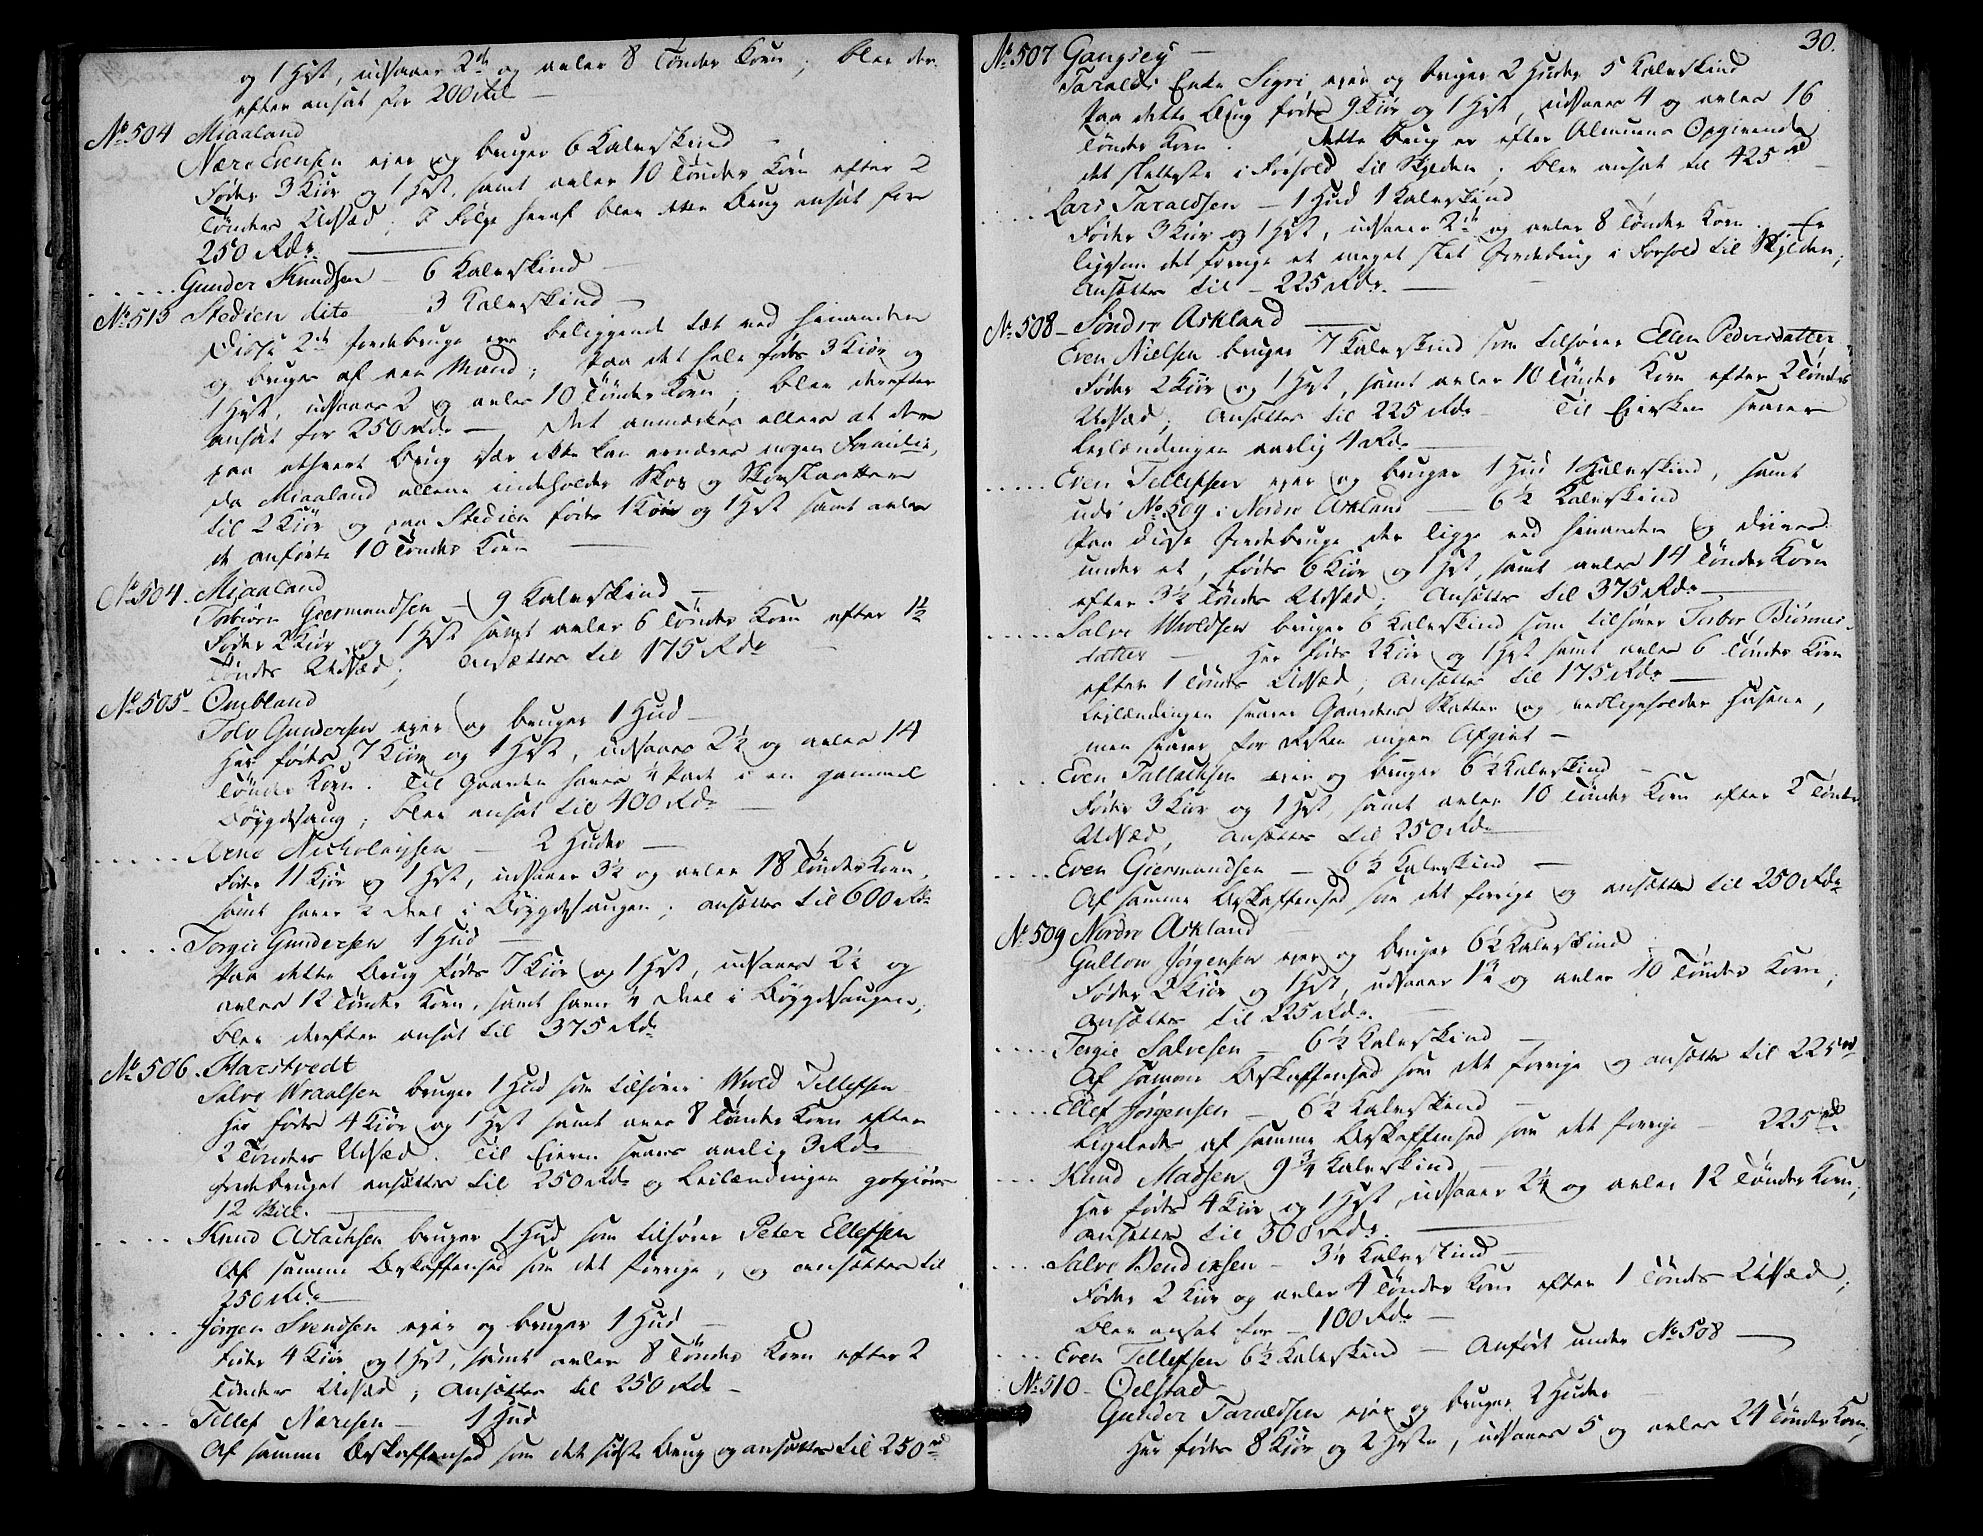 og 1 Hest, udsaaer 2de og avler 8 Tønder Korn; blev der-
efter ansat for 200 Rd
No 504 Miaaland
Nære Evensen ejer og bruger 6 Kalvskind
Føder 3 Kiør og 1 Hest, samt avler 10 Tønder Korn efter 2
Tønders Udsæd; I Følge heraf blev dette Brug ansat for
250 Rdr
Gunder Knudsen - 6 Kalvskind
No 513 Stedien dito 3 Kalvskind
Disse 2de Jordebruge ere beliggende tæt ved hinanden
og bruges af een Mand; Paa det hele fødes 3 Kiør og
1 Hest, udsaaes 2 og avles 10 Tønder Korn; blev derefter
ansat for 250 Rdr - Det anmærkes ellers at der
paa ethvert Brug især ikke kan ernæres nogen Familie,
da Miaaland allene indeholder Skov og Skovslaatter
til 2 Kiør og paa Stedien fødes 1 Koe og 1 Hest samt avles
de anførte 10 Tønder Korn
No 504. Miaaland
Torbiørn Giermundsen - 9 Kalvskind
Føder 2 Kiør og 1 Hest samt avler 6 Tønder Korn efter 1½
Tønders Udsæd; ansættes til 175 Rdr
No 505 - Ombland
Tolv Gundersen ejer og bruger 1 Hud
Her fødes 7 Kiør og 1 Hest, udsaaes 2½ og avles 14
Tønder Korn. Til Gaarden haves ¼ Part i en gammel
Bøygdesaug; blev ansat til 400 Rdr
Arne Nicholaysen - 2 Huder
Føder 11 Kiør og 1 Hest, udsaaer 3½ og avler 18 Tønder Korn,
samt haver ½ Deel i Bøygdesaugen; ansættes til 600 Rdr
Torgie Gundersen 1 Hud
Paa dette Brug fødes 7 Kiør og 1 Hest, udsaaes 2½ og
avles 12 Tønder Korn, samt haver ¼ Deel i Bøygdesaugen,
blev derefter ansat til 375 Rdr
No 506. Harstvedt
Salve Wraalsen bruger 1 Hud som tilhører Wrold Tellefsen
Her fødes 4 Kiør og 1 Hest samt avles 8 Tønder Korn efter
2 Tønders Udsæd. Til Eieren svares aarlig 3 Rdr
Jordebruget ansættes til 250 Rdr og Leilændingen godgiøres
12 Skill.
Knud Aslachsen bruger 1 Hud som tilhører Peter Ellefsen
Af samme Beskaffenhed som det forrige, og ansættes til
250 Rdr
Jørgen Svendsen ejer og bruger 1 Hud
Føder 4 Kiør og 1 Hest, samt avler 8 Tønder Korn efter 2
Tønders Udsæd; Ansættes til 250 Rdr
Tellef Næresen - 1 Hud
Af samme Beskaffenhed som det sidste Brug og ansættes til 250 rd
30.
No 507 Gangsey
Taralds Enke Sigri ejer og bruger 2 Huder 5 Kalvskind
Paa dette Brug fødes 9 Kiør og 1 Hest, udsaaes 4 og avles 16
Tønder Korn. Dette Brug er efter Almuens Opgivende
det sletteste i Forhold til Skylden; blev ansat til 425 rd
Lars Taraldsen - 1 Hud 1 Kalvskind
Føder 3 Kiør og 1 Hest, udsaaer 2de og avler 8 Tønder Korn. Er
ligesom det forrige et meget slet Jordebrug i Forhold til Skylden;
Ansættes til - 225 Rdr.
No 508 - Søndre Askland
Even Nielsen bruger 7 Kalvskind som tilhører Ellen Pedersdatter
Føder 2 Kiør og 1 Hest, samt avler 10 Tønder Korn efter 2 Tønders
Udsæd; Ansættes til 225 Rdr - Til Ejersken svarer
Leilændingen aarlig 4 Rdr
Even Tellefsen ejer og bruger 1 Hud 1 Kalvskind, samt
udi No 509 i Nordre Askland - 6½ Kalvskind
Paa disse Jordebruge der ligge ved hinanden og drives
under et, fødes 6 Kiør og 1 Hest, samt avles 14 Tønder Korn
efter 3½ Tønders Udsæd; Ansættes til 375 Rdr
Salve Wroldsen bruger 6 Kalvskind som tilhører Torbor Biørns-
datter - Her fødes 2 Kiør og 1 Hest samt avles 6 Tønder Korn
efter 1 Tønders Udsæd; Ansættes til 175 Rdr
Leilændingen svarer Gaardens Skatter og vedligeholder Husene,
men svarer for Resten ingen Afgivt -
Even Tallachsen ejer og bruger 6½ Kalvskind
Føder 3 Kiør og 1 Hest, samt avler 10 Tønder Korn efter 2 Tønders
Udsæd, ansættes til 250 Rdr
Even Giermundsen - 6½ Kalvskind
Af samme Beskaffenhed som det forrige og ansættes til 250 Rdr
No 509 Nordre Askland
Gullow Jørgensen ejer og bruger 6½ Kalvskind
Føder 2 Kiør og 1 Hest, udsaaer 1½ og avler 10 Tønder Korn,
ansættes til 225 Rdr.
Tergie Salvesen - 6½ Kalvskind
Af samme Beskaffenhed som det forrige og ansættes til 225 rd
Ellef Jørgensen - 6½ Kalvskind
Ligeledes af samme Beskaffenhed som det forrige - 225 rd
Knud Madsen 9¾ Kalvskind
Her fødes 4 Kiør og 1 Hest, udsaaes 2½ og avles 12 Tønder Korn;
ansættes til 300 Rdr.
Salve Bendixsen - 3¼ Kalvskind
Føder 2 Kiør og avler 4 Tønder Korn efter 1 Tønders Udsæd;
blev ansat for - 100 Rdr
Even Tellefsen 6½ Kalvskind - Anført under No 508
No 510 - Oelstad
Gunder Taraldsen ejer og bruger 2 Huder
Her fødes 8 Kiør og 2 Heste, udsaaes 5 og avles 24 Tønder Korn,